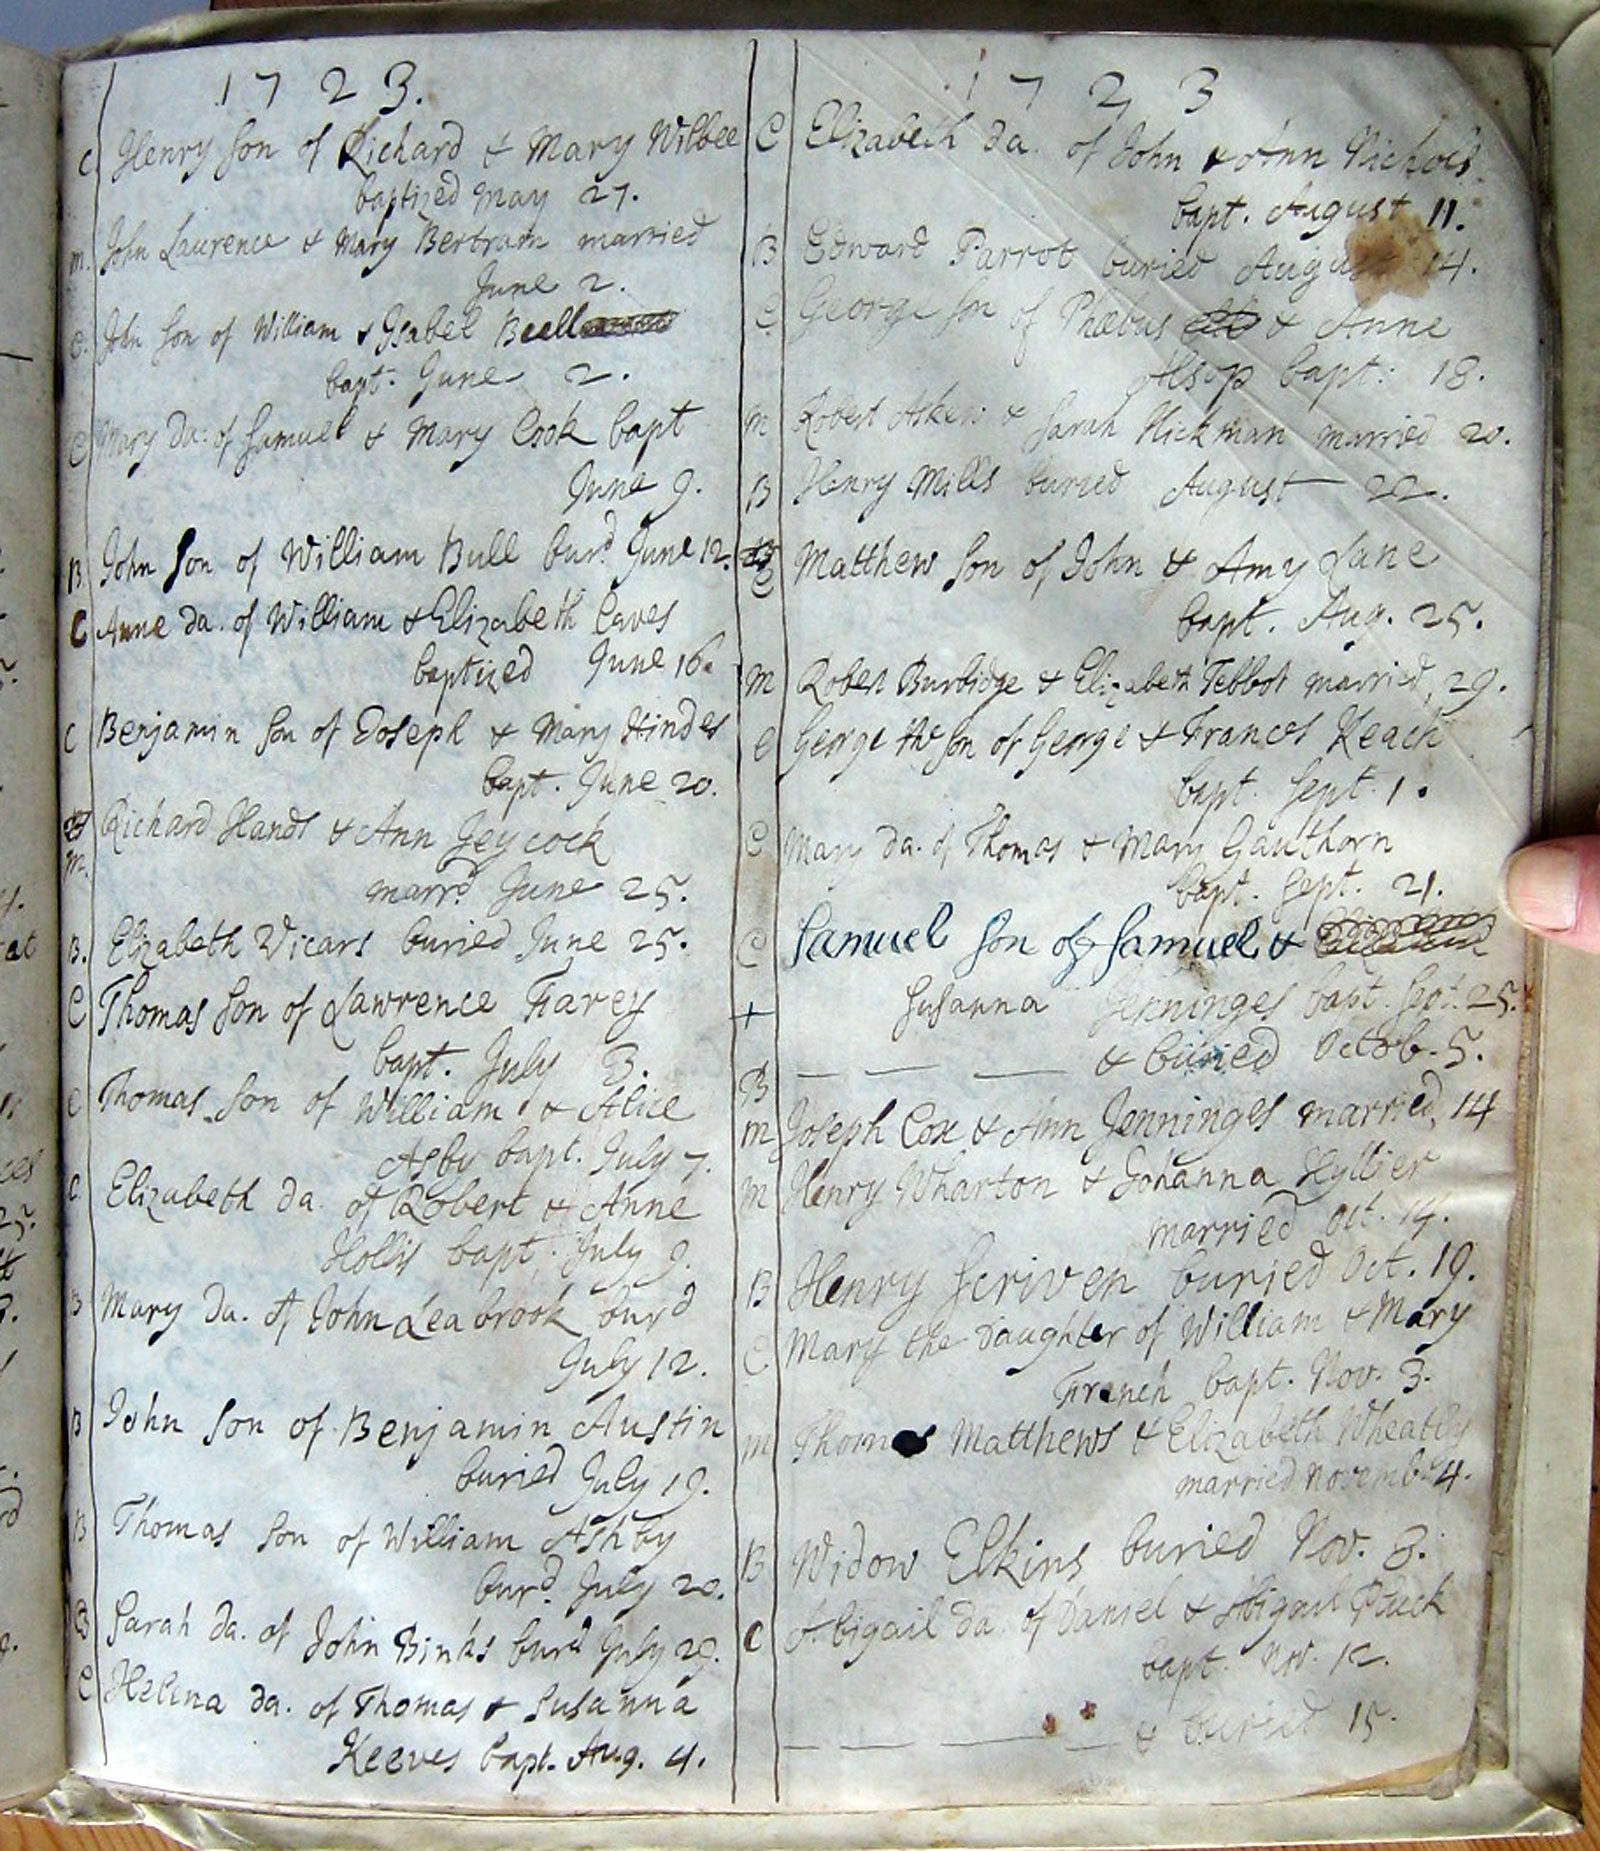 1723.
C Henry Son of Richard & Mary Wilbee
baptized May 27.
m. John Laurence & Mary Bertram married
June 2.
C. John Son of William & Isabel Bull
bapt. June 2.
C Mary da: of Samuel & Mary Cook bapt
June 9.
B John Son of William Bull burd. June 12.
C Anne da. of William & Elizabeth Eaves
baptized June 16.
C Benjamin Son of Joseph & Mary Hindes
bapt. June 20.
m. Richard Hands & Ann Geycock
marrd. June 25.
B. Elizabeth Vicars buried June 25.
C Thomas Son of Lawrence Farey
bapt. July 3.
C Thomas Son of William & Alice
Asby bapt. July 7.
C Elizabeth da. of Robert & Anne
Hollis bapt. July 9.
B Mary da. of John Leabrook burd
July 12.
B John Son of Benjamin Austin
buried July 19.
B Thomas Son of William Ashby
burd. July 20.
B Sarah da. of John Binks burd July 29.
C Helena da. of Thomas & Susanna
Keeves bapt. Aug. 4.
1723
C Elizabeth da. of John & Ann Nichols
bapt. August 11.
B Edward Parrot buried August 14.
C George Son of Phœbus & Anne
Alsop bapt: 18.
m Robert Askew & Sarah Hickman married 20.
B Henry Mills buried August 22.
C Matthew Son of John & Amy Lane
bapt. Aug. 25.
m Robert Burbidge & Elizabeth Tebbot married, 29.
C George the Son of George & Frances Keach
bapt. Sept. 1.
C Mary da. of Thomas & Mary Gauthorn
bapt. Sept. 21.
C Samuel Son of Samuel &
+ Susanna Jenninges bapt. Sept. 25.
B — — — & buried Octob. 5.
m Joseph Cox & Ann Jenninges married, 14
m Henry Wharton & Johanna Hyllier
married Oct. 14.
B Henry Scriven buried Oct. 19.
C Mary the Daughter of William & Mary
French bapt. Nov. 3.
m Thomas Matthews & Elizabeth Wheatly
married Novemb. 4.
B Widow Elkins buried Nov. 8.
C Abigail da. of Daniel & Abigail
bapt. Nov. 12.
— — — — & buried 15.